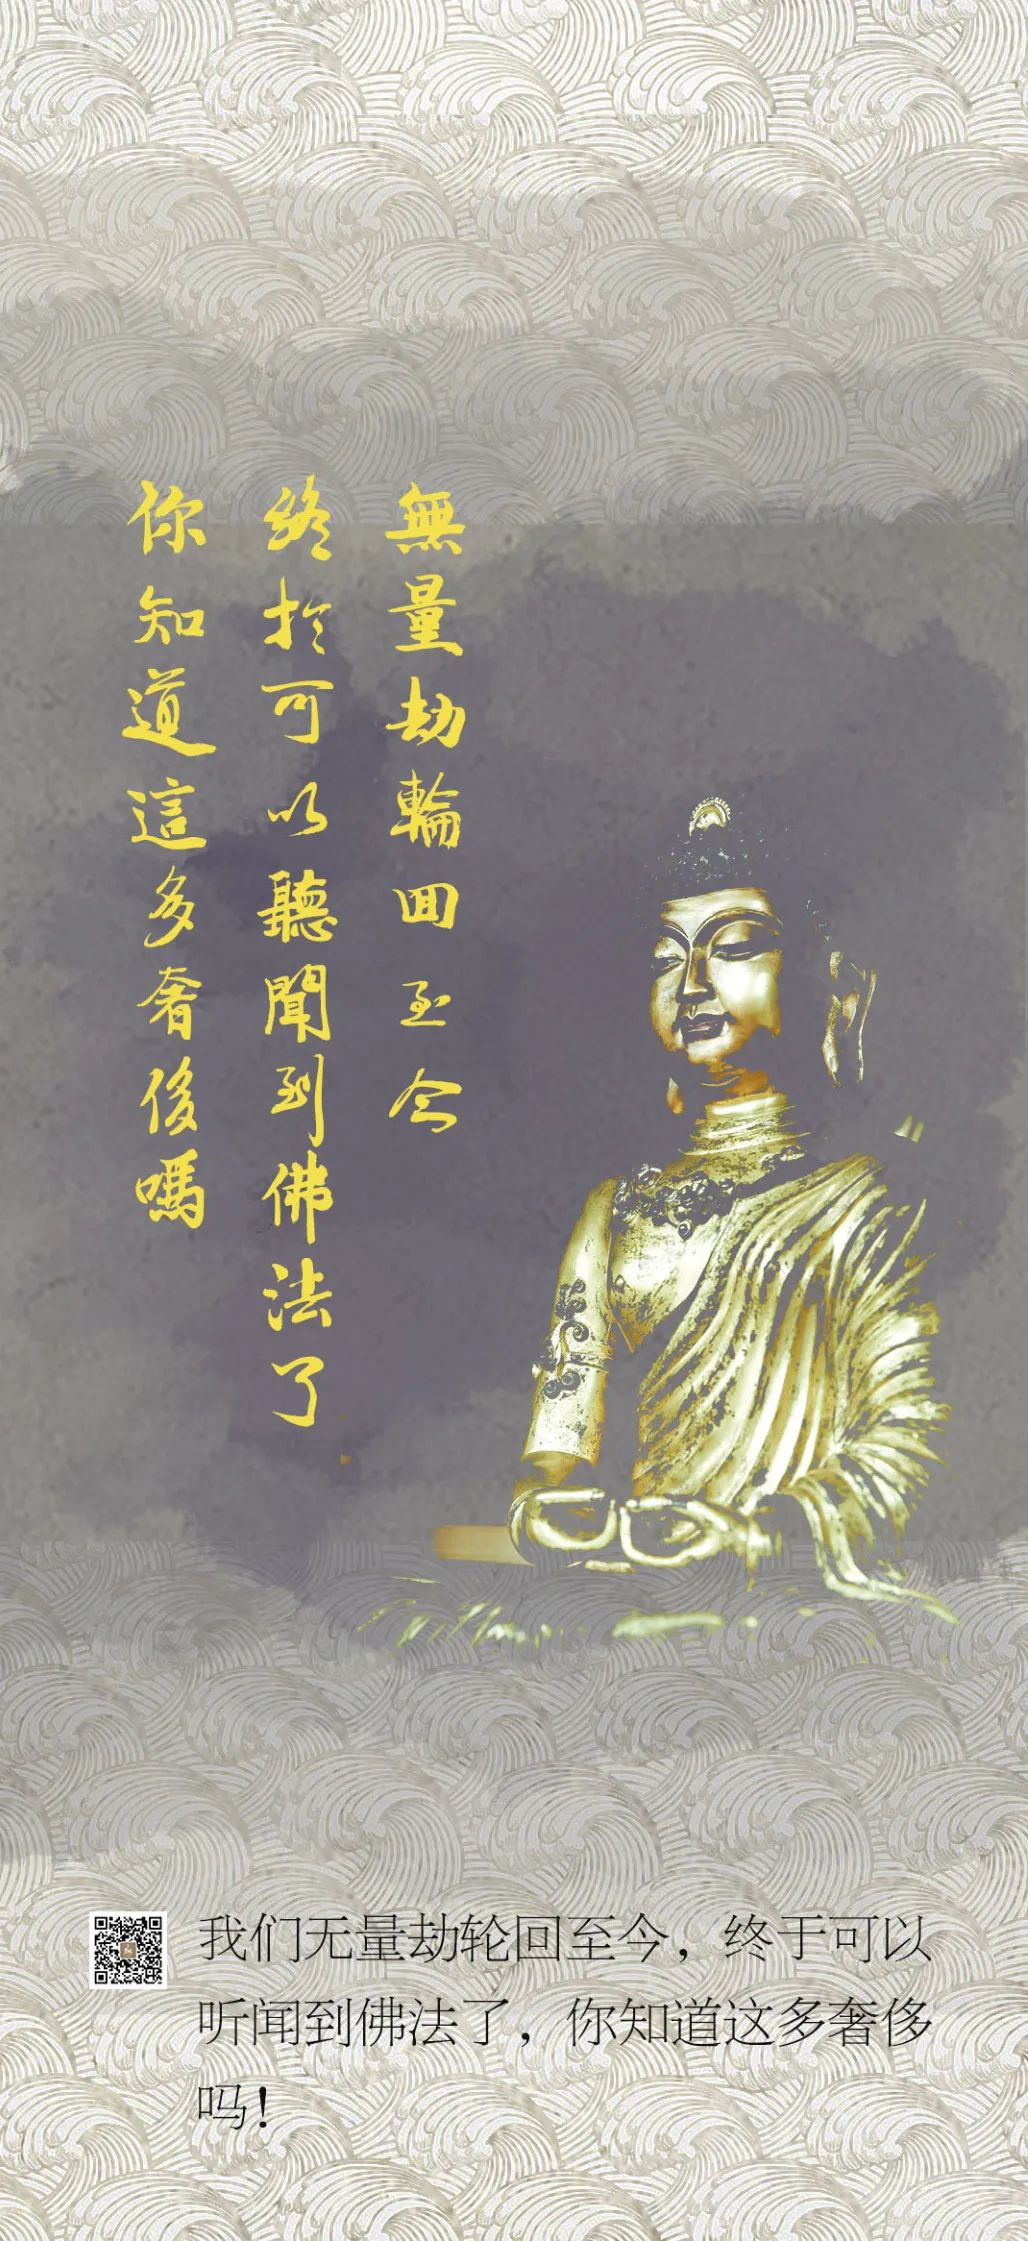 無量劫輪回至今
終於可以聽聞到佛法了
你知道這多奢侈嗎
我们无量劫轮回至今，终于可以
听闻到佛法了，你知道这多奢侈
吗！